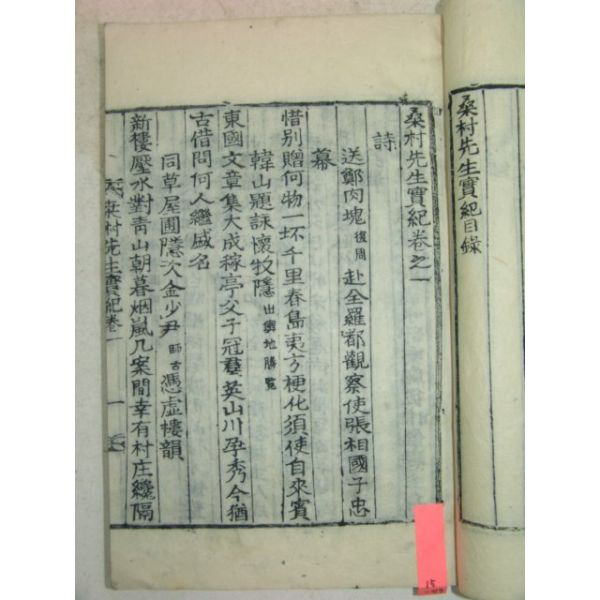 桑村先生實紀目錄
桑村先生實紀卷之一
詩
送鄭肉塊復周赴全羅都觀察使張相國子忠
幕
惜别贈何物一坏千里春島夷方梗化須使自來賓
韓山題詠懷牧隱出輿地勝覽
東國文章集大成稼亭父子冠羣英山川孕秀今猶
古借問何人繼盛名
同草屋圃隱次金少尹師古憑虛樓韻
新樓壓水對靑山朝暮烟嵐几案間幸有村庄纔隔
桑村先生實紀卷一
一
15